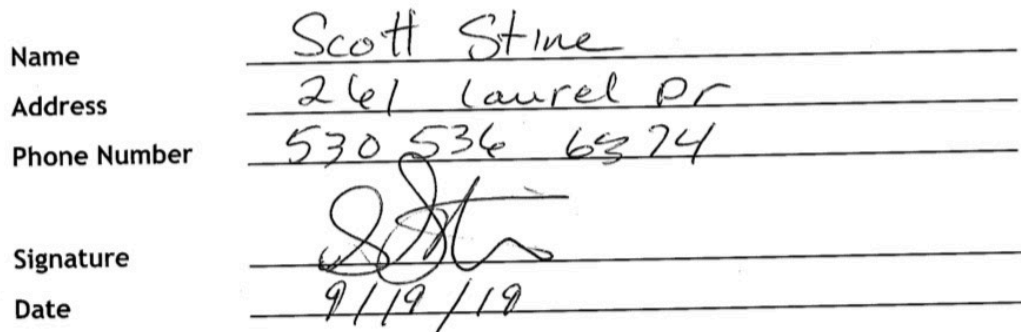 Name Scott Stine
Address 261 Laurel Dr
Phone Number 530 536 6374
Signature
Date 9/19/19